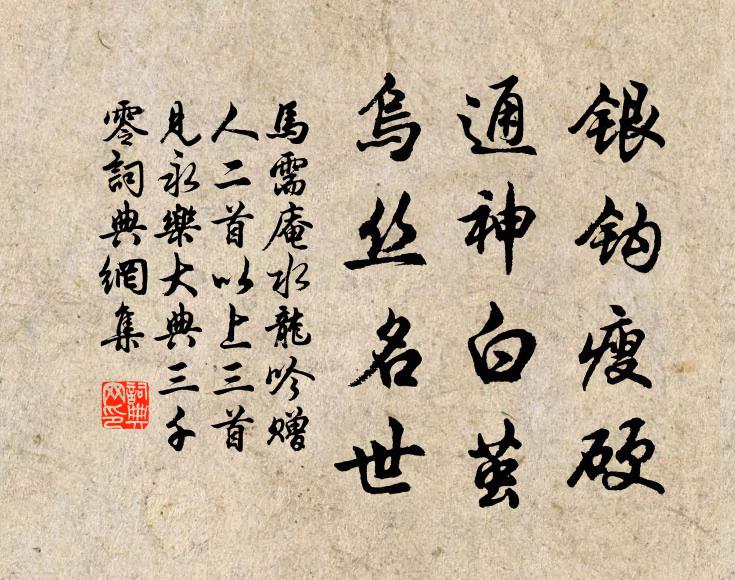 银钩瘦硬
通神白茧
乌丝名世
馬需庵水龍吟赠
人二首以上三首
見永樂大典三千
零詞典網集
詞典
网印